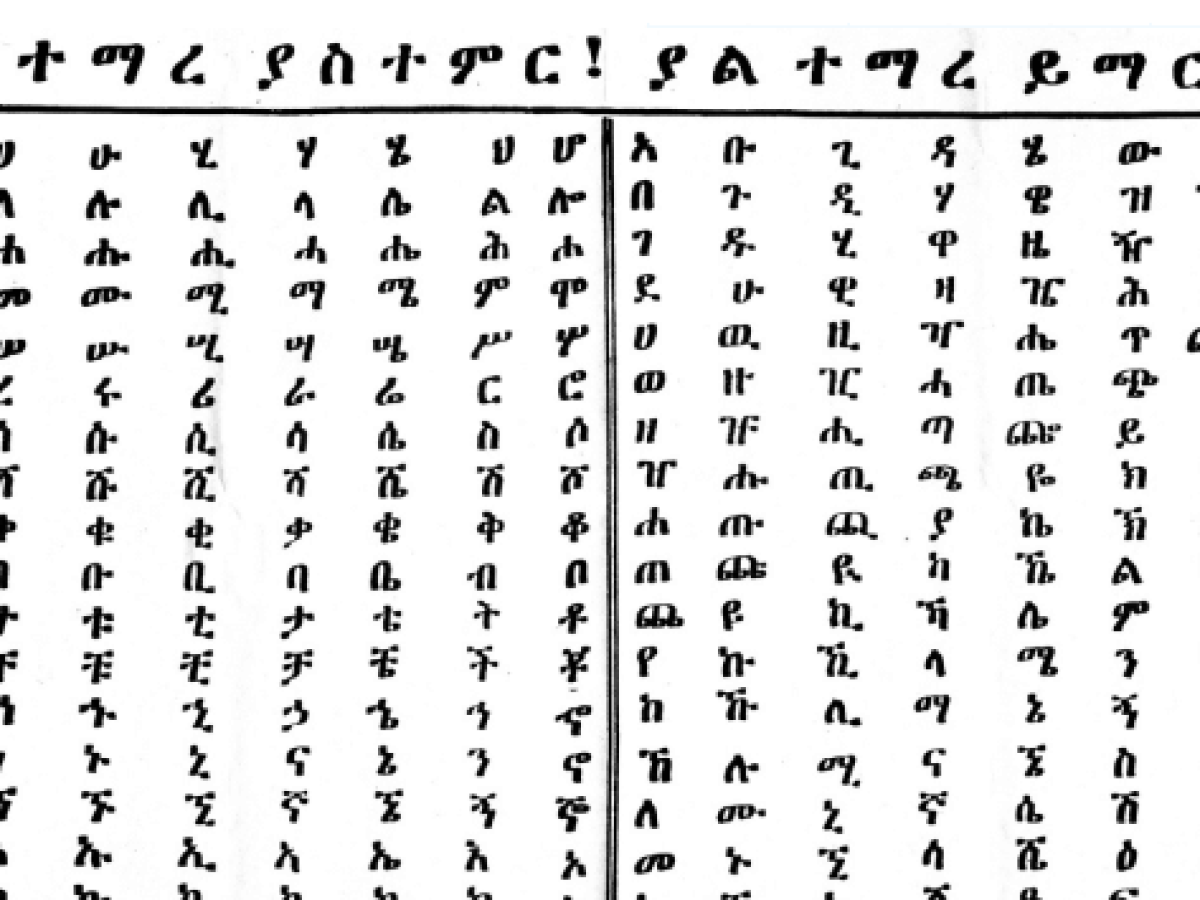 ተማረ ያስተምር! ያልተማረ ይማር
ሀ ሁ ሂ ሃ ሄ ህ ሆ
ለ ሉ ሊ ላ ሌ ል ሎ
ሐ ሑ ሒ ሓ ሔ ሕ ሖ
መ ሙ ሚ ማ ሜ ም ሞ
ሠ ሡ ሢ ሣ ሤ ሥ ሦ
ረ ሩ ሪ ራ ሬ ር ሮ
ሰ ሱ ሲ ሳ ሴ ስ ሶ
ሸ ሹ ሺ ሻ ሼ ሽ ሾ
ቀ ቁ ቂ ቃ ቄ ቅ ቆ
በ ቡ ቢ ባ ቤ ብ ቦ
ተ ቱ ቲ ታ ቴ ት ቶ
ቸ ቹ ቺ ቻ ቼ ች ቾ
ኀ ኁ ኂ ኃ ኄ ኅ ኆ
ኑ ኒ ና ኔ ን ኖ
ኘ ኙ ኚ ኛ ኜ ኝ ኞ
ኡ ኢ ኣ ኤ እ ኦ
አ ቡ ጊ ዳ ሄ ው
በ ጉ ዲ ሃ ዌ ዝ
ገ ዱ ሂ ዋ ዜ ዥ
ደ ሁ ዊ ዛ ዤ ሕ
ሀ ዉ ዚ ዣ ሔ ጥ
ወ ዙ ዢ ሓ ጤ ጭ
ዘ ዡ ሒ ጣ ጬ ይ
ዠ ሑ ጢ ጫ ዬ ክ
ሐ ጡ ጪ ያ ኬ ኽ
ጠ ጩ ዪ ካ ኼ ል
ጨ ዩ ኪ ኻ ሌ ም
የ ኩ ኺ ላ ሜ ን
ከ ኹ ሊ ማ ኔ ኝ
ኸ ሉ ሚ ና ኜ ስ
ለ ሙ ኒ ኛ ሴ ሽ
መ ኑ ኚ ሳ ሼ ዕ